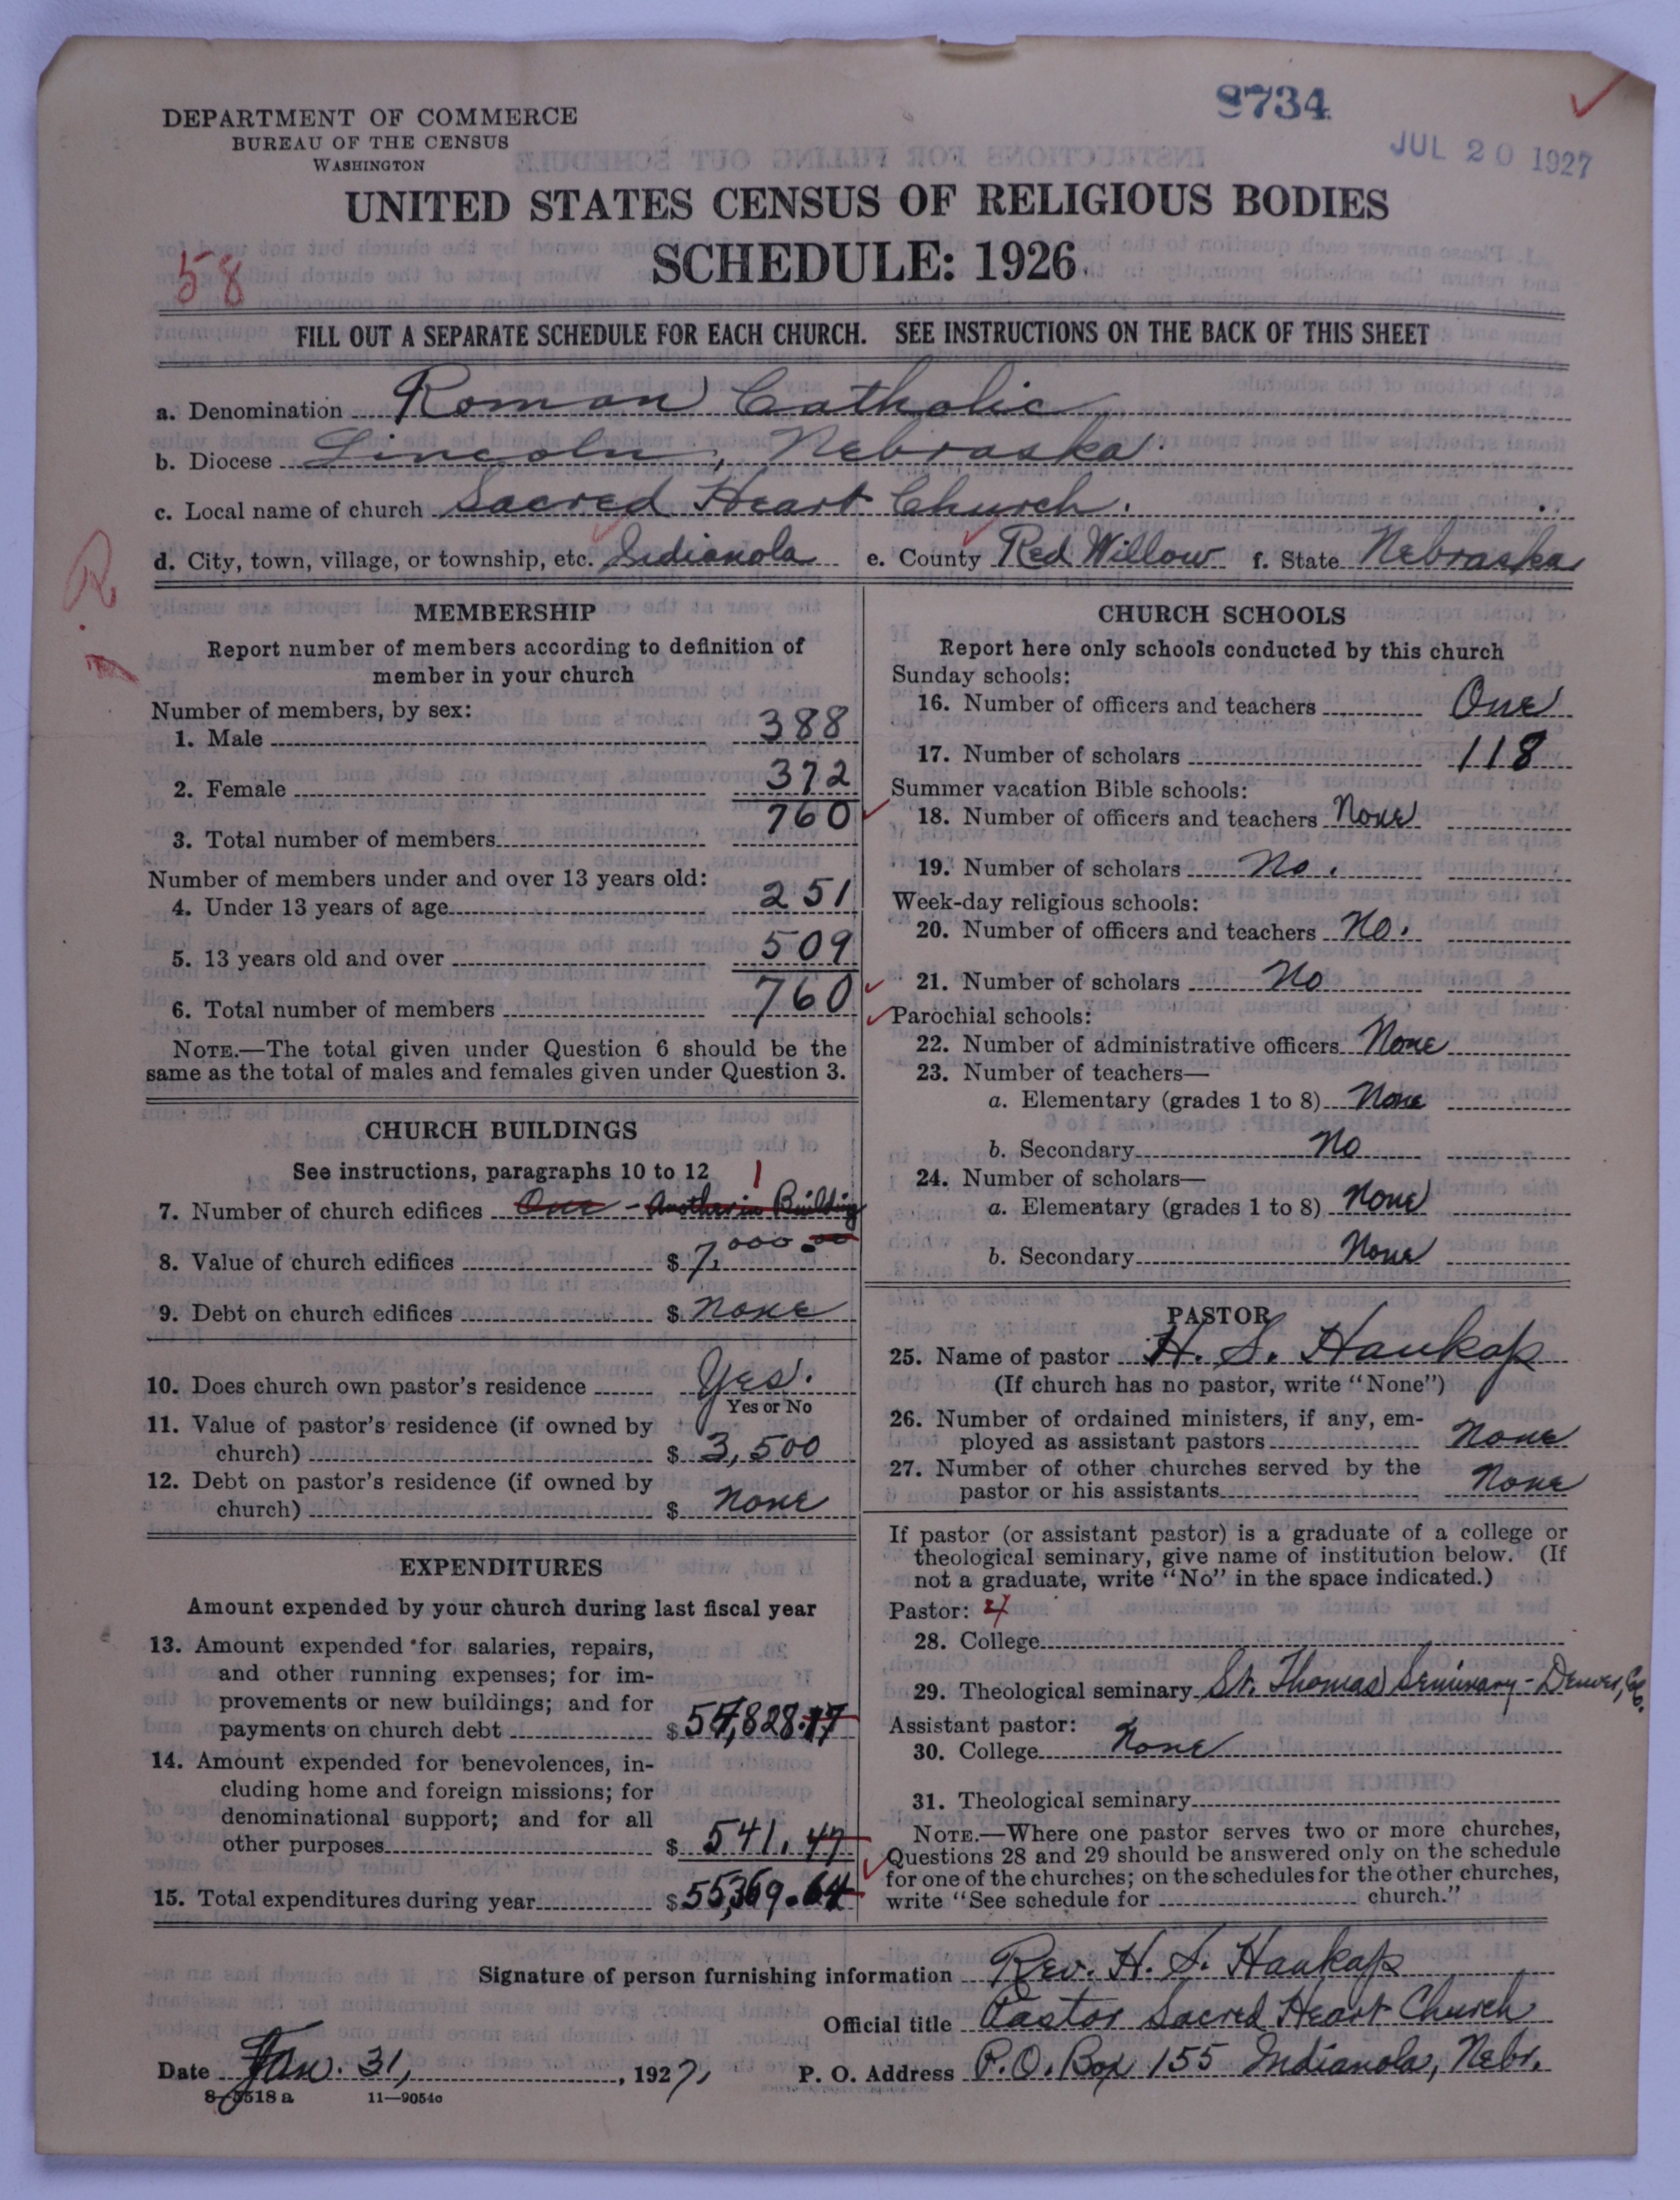 8734
JUL 20 1927
DEPARTMENT OF COMMERCE
BUREAU OF THE CENSUS
WASHINGTON
UNITED STATES CENSUS OF RELIGIOUS BODIES
SCHEDULE: 1926
58
FILL OUT A SEPARATE SCHEDULE FOR EACH CHURCH. SEE INSTRUCTIONS ON THE BACK OF THIS SHEET
a. Denomination Roman Catholic
b. Diocese Lincoln, Nebraska
c. Local name of church Sacred Heart Church.
d. City, town, village, or township, etc. Indianola e. County Red Willow f. State Nebraska
MEMBERSHIP
Report number of members according to definition of
member in your church
Number of members, by sex:
1. Male 388
2. Female 372
3. Total number of members 760
Number of members under and over 13 years old:
4. Under 13 years of age 251
5. 13 years old and over 509
6. Total number of members 760
NOTE.—The total given under Question 6 should be the
same as the total of males and females given under Question 3.
CHURCH BUILDINGS
See instructions, paragraphs 10 to 12
1
7. Number of church edifices One - Another in Building
8. Value of church edifices $ 7,000.00
9. Debt on church edifices $ None
10. Does church own pastor's residence Yes.
Yes or No
11. Value of pastor's residence (if owned by
church) $ 3,500
12. Debt on pastor's residence (if owned by
church) $ None
EXPENDITURES
Amount expended by your church during last fiscal year
13. Amount expended for salaries, repairs,
and other running expenses; for im-
provements or new buildings; and for
payments on church debt $ 54,828.17
14. Amount expended for benevolences, in-
cluding home and foreign missions; for
denominational support; and for all
other purposes $ 541.47
15. Total expenditures during year $ 55,369.64
CHURCH SCHOOLS
Report here only schools conducted by this church
Sunday schools:
16. Number of officers and teachers One
17. Number of scholars 118
Summer vacation Bible schools:
18. Number of officers and teachers None
19. Number of scholars No.
Week-day religious schools:
20. Number of officers and teachers No.
21. Number of scholars No
Parochial schools:
22. Number of administrative officers None
23. Number of teachers—
a. Elementary (grades 1 to 8) None
b. Secondary No
24. Number of scholars—
a. Elementary (grades 1 to 8) None
b. Secondary None
PASTOR
25. Name of pastor H. S. Haukap
(If church has no pastor, write "None")
26. Number of ordained ministers, if any, em-
ployed as assistant pastors None
27. Number of other churches served by the
pastor or his assistants None
If pastor (or assistant pastor) is a graduate of a college or
theological seminary, give name of institution below. (If
not a graduate, write "No" in the space indicated.)
Pastor: 4
28. College
29. Theological seminary St. Thomas Seminary - Denver, Co.
Assistant pastor:
30. College None
31. Theological seminary
NOTE.—Where one pastor serves two or more churches,
Questions 28 and 29 should be answered only on the schedule
for one of the churches; on the schedules for the other churches,
write "See schedule for church."
Signature of person furnishing information Rev. H. S. Haukap
Official title Pastor Sacred Heart Church
Date Jan. 31, 1927, P. O. Address P.O. Box 155 Indianola, Nebr.
8-5518 a 11—9054c